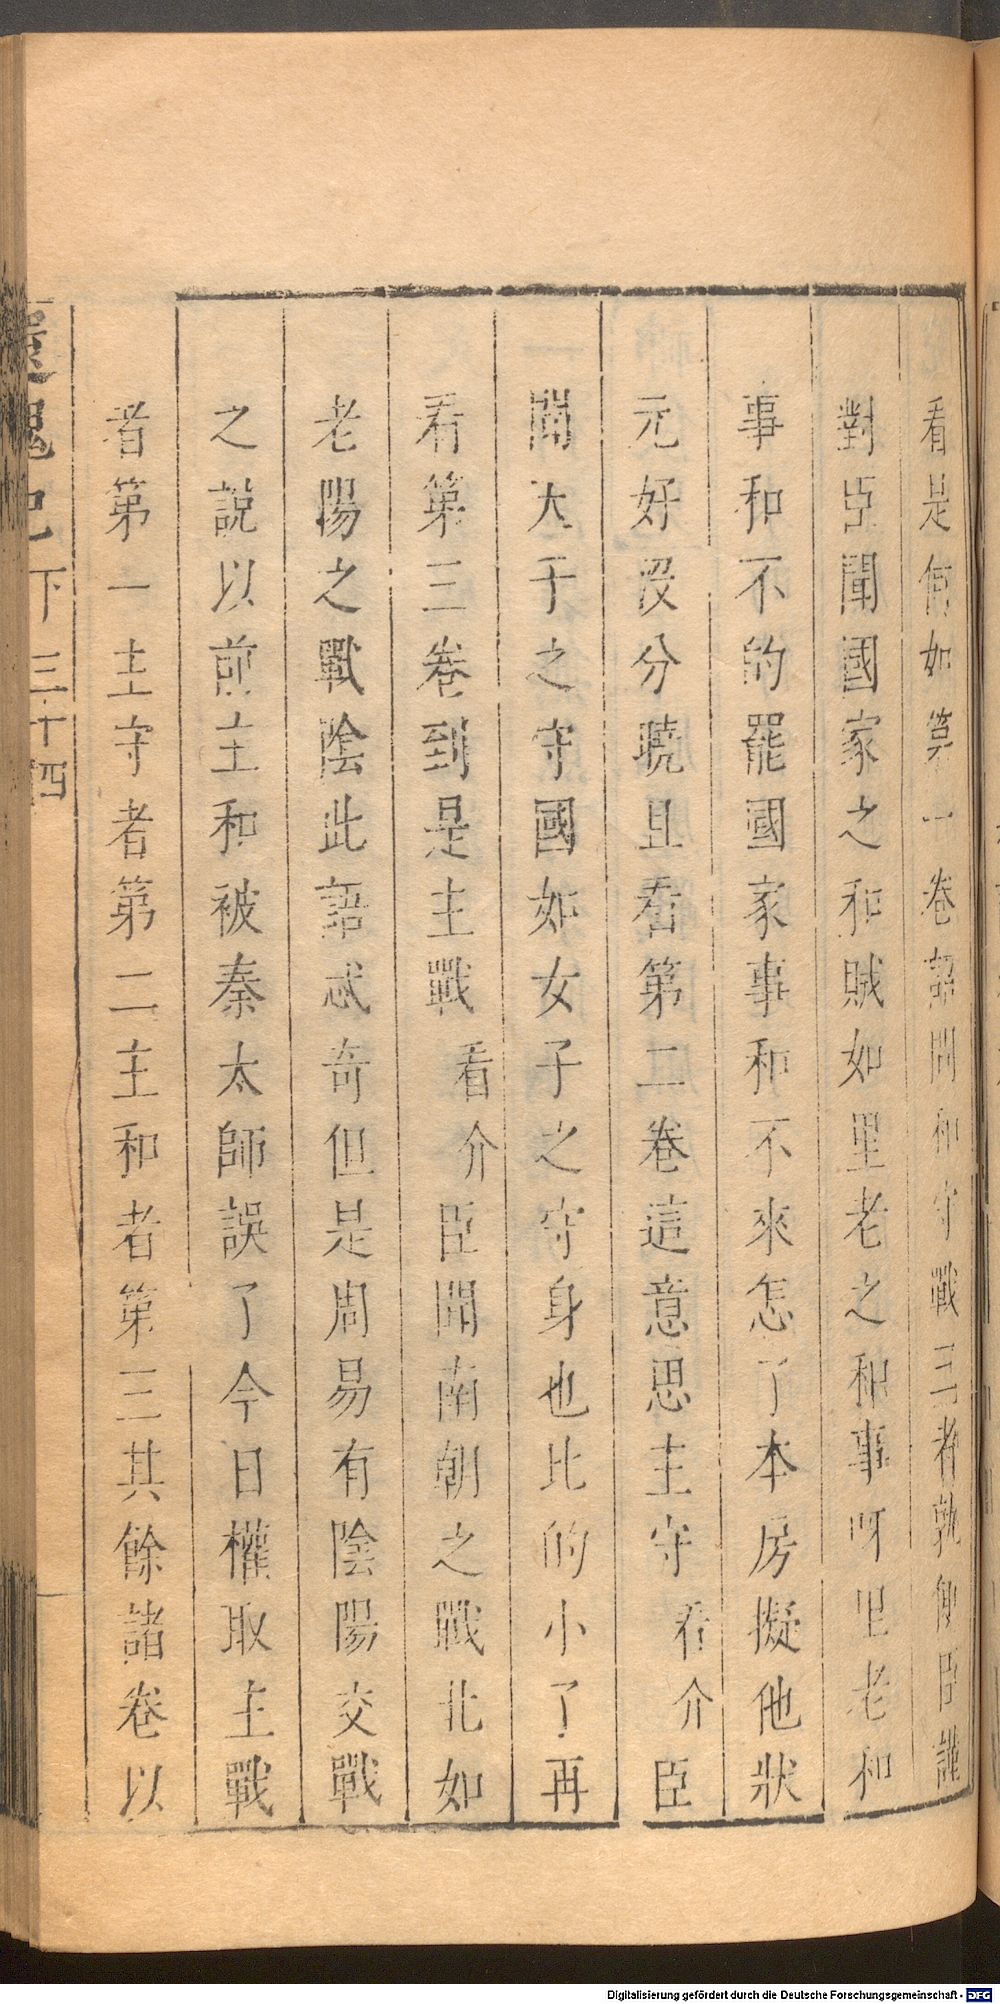 看是何如第一卷詔問和守戰三者孰便臣謹
對臣聞國家之和賊如里老之和事呀里老和
事和不的罷國家事和不來怎了本房擬他狀
元好沒分曉且看第二卷這意思主守看介臣
聞天子之守國如女子之守身也比的小了再
看第三卷到是主戰看介臣聞南朝之戰北如
老陽之戰陰此語忒奇但是周易有陰陽交戰
之說以前主和被秦太師誤了今日權取主戰
者第一主守者第二主和者第三其餘諸卷以
還魂記下三十四
Digitalisierung gefördert durch die Deutsche Forschungsgemeinschaft - DFG